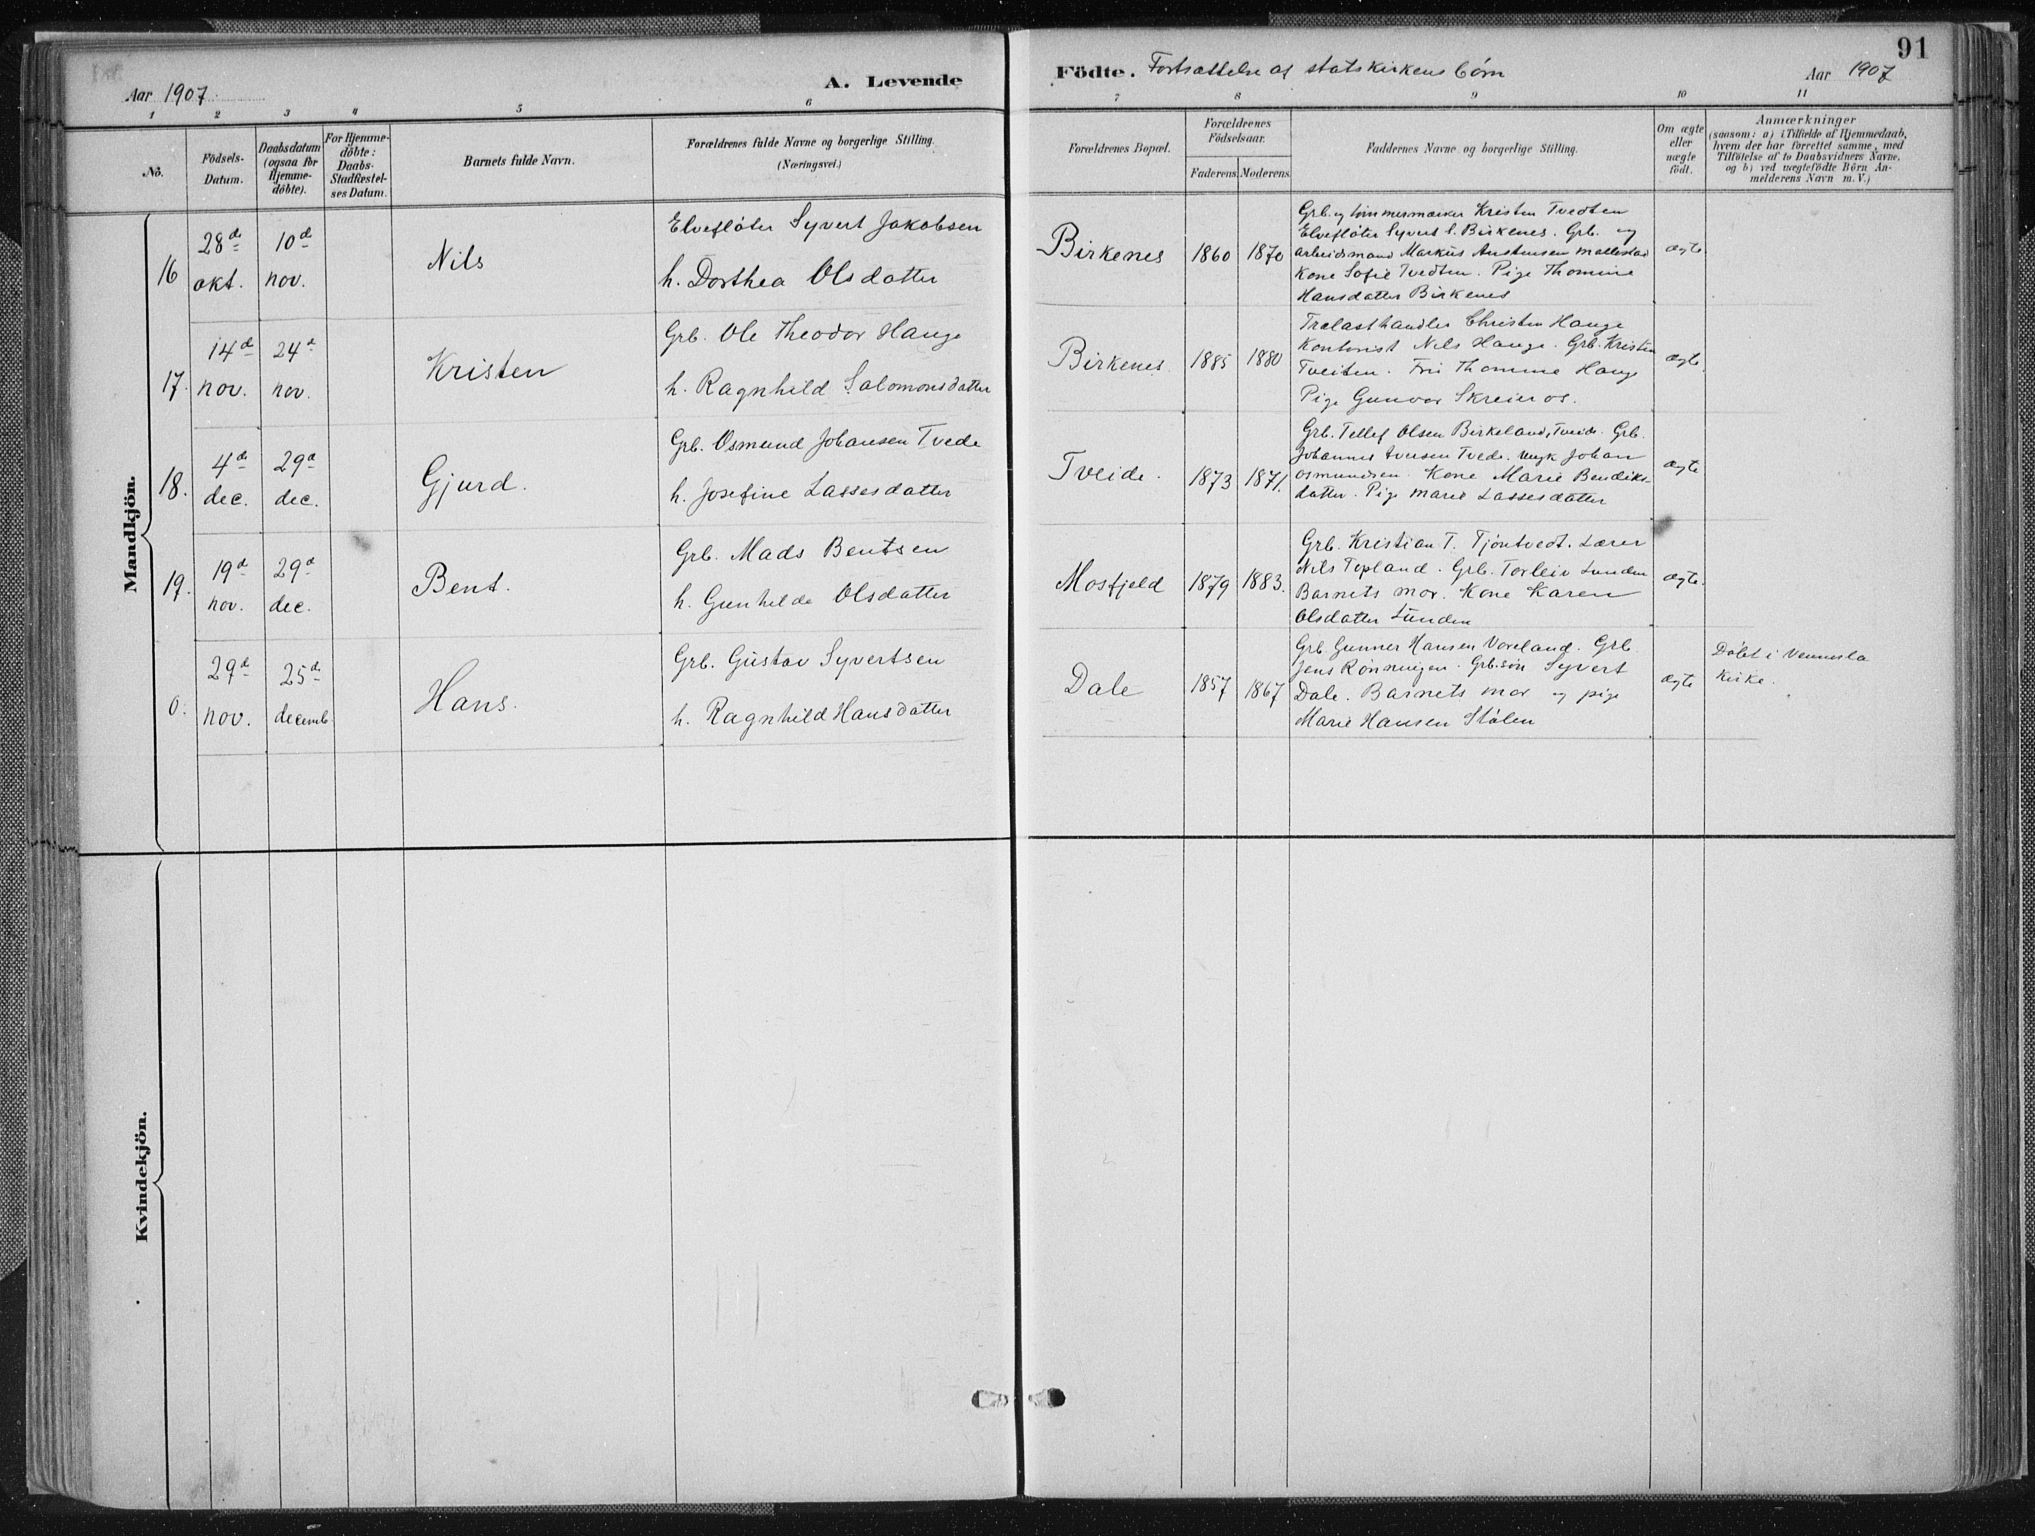 91
Aar 1907
A. Levende
Födte. Fortsættelse af statskirkens börn
Aar 1907
1 2 3 4 5 6 7 8 9 10 11
No.
Födsels-
Datum.
Daabsdatum
(ogsaa for
Hjemme-
döbte).
For Hjemme-
döbte:
Daabs-
Stadfæstel-
ses Datum.
Barnets fulde Navn.
Forældrenes fulde Navne og borgerlige Stilling.
(Næringsvei.)
Forældrenes Bopæl.
Forældrenes
Födselsaar.
Faderens. Moderens.
Faddernes Navne og borgerlige Stilling.
Om ægte
eller
uægte
födt.
Anmærkninger
(saasom: a) i Tilfælde af Hjemmedaab,
hvem der har forrettet samme, med
Tilföielse af to Daabsvidners Navne,
og b) ved uægtefödte Börn An-
melderens Navn m. V.)
Mandkjön.
16
28de
okt.
10de
nov.
Nils
Elvefløter Syvert Jakobsen
h. Dorthea Olsdatter
Birkenes
1860
1870
Grb. og tømmermærker Kristen Tvedten
Elvefløter Syvert S. Birkenes. Grb. og
arbeidsmand Markus Anstensen Mollestad
Kone Sofie Tvedten. Pige Thomine
Hansdatter Birkenes
ægte
17.
14de
nov.
24de
nov.
Kristen
Grb. Ole Theodor Hauge
h. Ragnhild Salomonsdatter
Birkenes.
1885
1880
Trælasthandler Christen Hauge
Kontorist Nils Hauge. Grb. Kristen
Tveiten. Fru Thomine Hauge
Pige Gunvor Skreieros.
ægte.
18.
4de
dec.
29de
dec.
Gjurd.
Grb. Osmund Johansen Tvede
h. Josefine Lassesdatter
Tveide.
1873
1871.
Grb. Tellef Olsen Birkeland, Tveide. Grb.
Johannes Iversen Tvede. Ungk Johan
Osmundsen. Kone Marie Bendiks-
datter. Pige Marie Lassesdatter
ægte
19.
19de
nov.
29de
dec.
Bent.
Grb. Mads Bentsen
h. Gunhilde Olsdatter
Mosfjeld
1879
1883.
Grb. Kristian T. Tjöntvedt. Lærer
Nils Topland. Grb. Torleiv Lunden
Barnets mor. Kone Karen
Olsdatter Lunden
ægte.
0.
29de
nov.
25de
decemb.
Hans.
Grb. Gustav Syvertsen
h. Ragnhild Hansdatter
Dale
1857
1867
Grb. Gunner Hansen Voreland. Grb.
Jens Rønningen. Grb.søn Syvert
Dale. Barnets mor og pige
Marie Hansen Stølen
ægte
Døbt i Vennesla
kirke.
Kvindekjön.